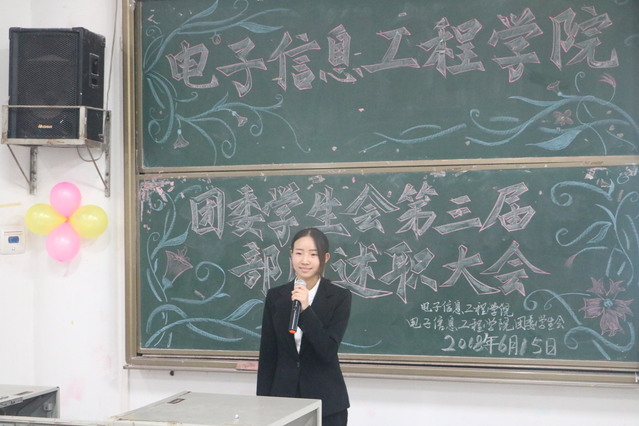 电子信息工程学院
团委学生会第三届
部 述职大会
电子信息工程学院
电子信息工程学院团委学生会
2018年6月15日